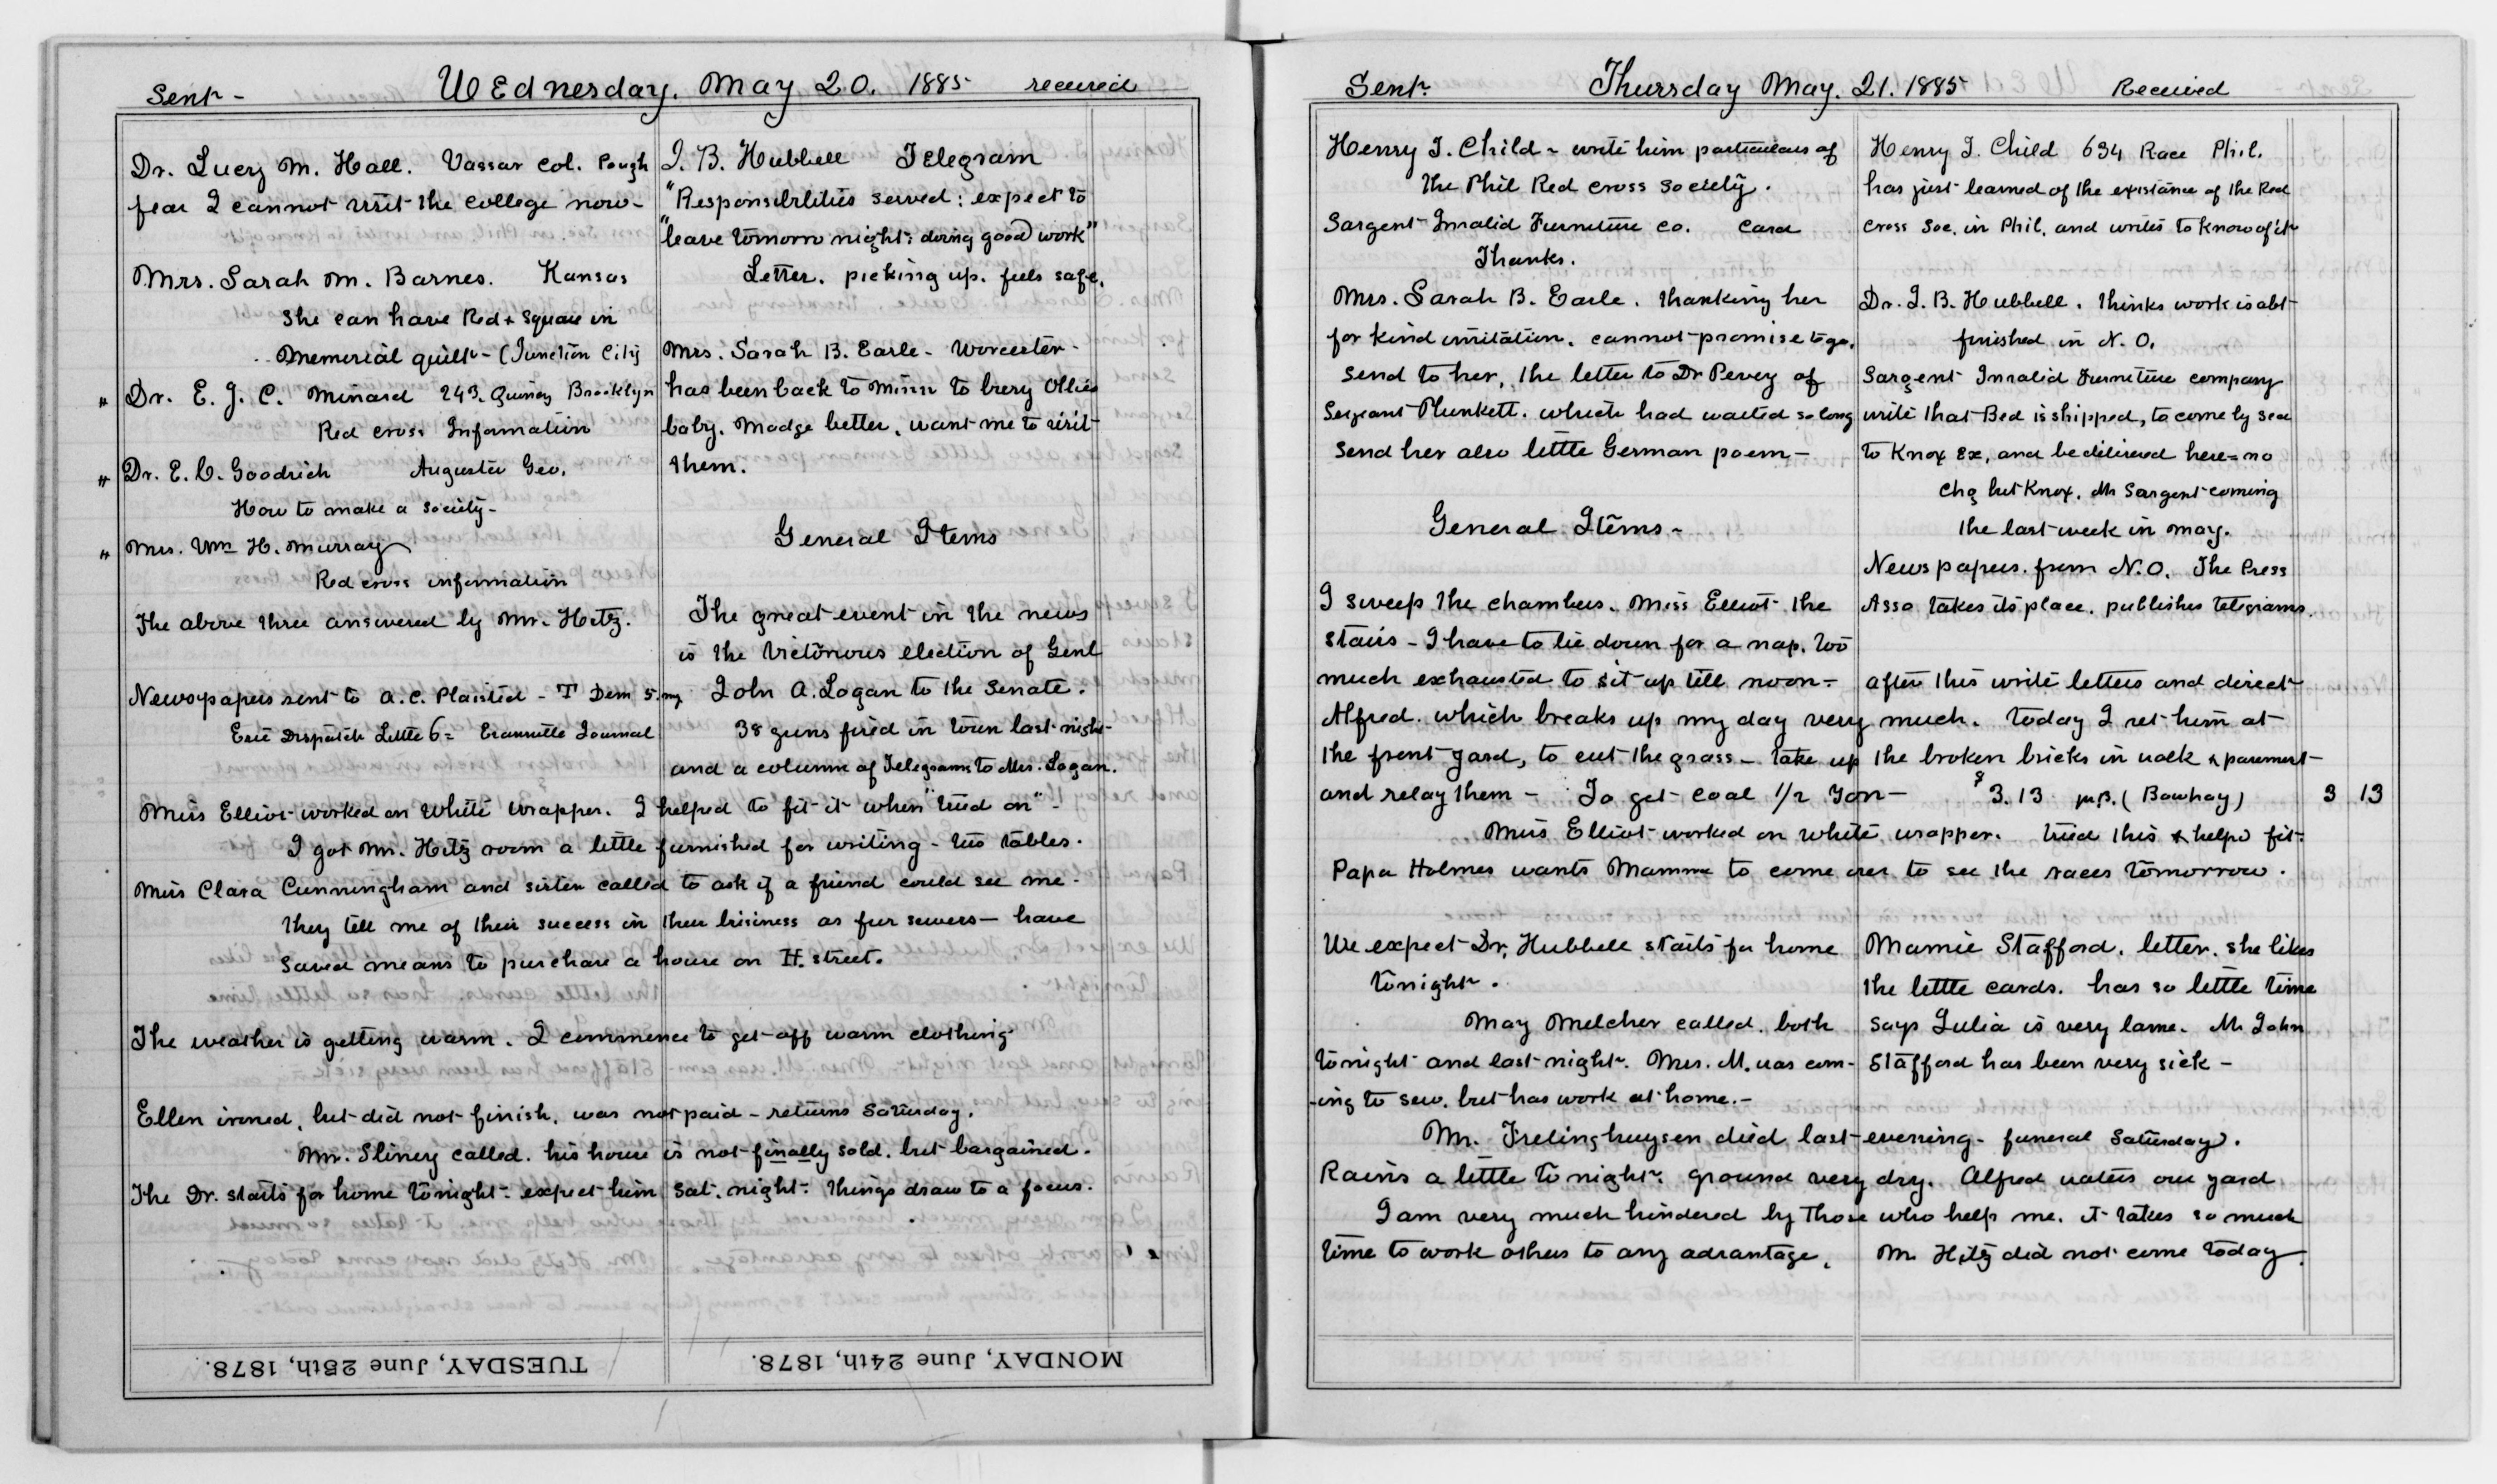 Sent - Wednesday. May 20. 1885 received
Dr. Lucy M. Hall. Vassar Col. Pough
fear I cannot visit the college now -
Mrs. Sarah M. Barnes. Kansas
She can have Red + Square in
Memorial quilt - (Junction City
" Dr. E. J. C. Minard 243. Quincy Brooklyn
Red cross Information
" Dr. E. C. Goodrich Augusta Geo.
How to make a society -
" Mrs. Wm H. Murray
Red cross information
The above three answered by Mr. Hitz.
Newspapers sent to A. C. Plaisted - T Dem 5. my
Erie Dispatch Letter 6 = Evansville Journal
J. B. Hubbell Telegram
"Responsibilities served: expect to
"leave tomorro night: doing good work"
Letter. picking up. feels safe.
Mrs. Sarah B. Earle - Worcester -
has been back to Minn to bury Ollies
baby. Madge better. want me to visit
them.
General Items
The great event in the news
is the Victorious election of Genl
John A. Logan to the Senate.
38 guns fired in town last night -
and a column of Telegrams to Mrs. Logan.
Miss Elliot worked on White wrapper. I helped to fit it when "tried on" -
I got Mr. Hitz room a little furnished for writing - two tables.
Miss Clara Cunningham and sister called to ask if a friend could see me -
they tell me of their success in their business as fur sewers — have
saved means to purchase a house on H. street.
The weather is getting warm. I commence to get off warm clothing
Ellen ironed, but did not finish. was not paid - returns Saturday.
Mr. Sliney called. his house is not finally sold. but bargained.
The Dr. starts for home tonight - expect him Sat. night - things draw to a focus.
MONDAY, June 24th, 1878.
TUESDAY, June 25th, 1878.
Sent. Thursday May. 21. 1885 Received
Henry T. Child ~ write him particulars of
the Phil Red Cross Society.
Sargent Invalid Furniture Co. Card
Thanks.
Mrs. Sarah B. Earle. thanking her
for kind invitation. cannot promise to go.
Send to her, the letter to Dr Pevey of
Sergeant Plunkett. which had waited so long
Send her also little German poem -
General Items -
I sweep the chambers. Miss Elliot the
stairs - I have to lie down for a nap. too
much exhausted to sit up till noon -
Henry T. Child 634 Race Phil.
has just learned of the existance of the Red
Cross Soc. in Phil. and writes to know of it
Dr. J. B. Hubbell. thinks work is abt
finished in N. O.
Sargent Invalid Furniture company
write that Bed is shipped, to come by sea
to Knox Ex, and be delivered here = no
chg but Knox. Mr Sargent coming
the last week in may.
Newspapers from N.O. The Press
Asso takes its place. publishes telegrams.
after this write letters and direct
Alfred. which breaks up my day very much. today I set him at
the front yard, to cut the grass - take up the broken bricks in walk & pavement
and relay them - To get coal 1/2 Ton - $3.13 pd. (Bowhay) 3 13
Miss Elliot worked on white wrapper. tried this & helpd fit.
Papa Holmes wants Mamma to come over to see the races tomorrow.
We expect Dr. Hubbell starts for home
tonight.
May Melcher called. both
tonight and last night. Mrs. M. was com-
-ing to sew. but has work at home. -
Mamie Stafford. letter. she likes
the little cards. has so little time
says Julia is very lame. Mr John
Stafford has been very sick -
Mr. Frelinghuysen died last evening - funeral Saturday.
Rains a little tonight. ground very dry. Alfred waters our yard
I am very much hindered by those who help me. it takes so much
time to work others to any advantage. Mr Hitz did not come today.